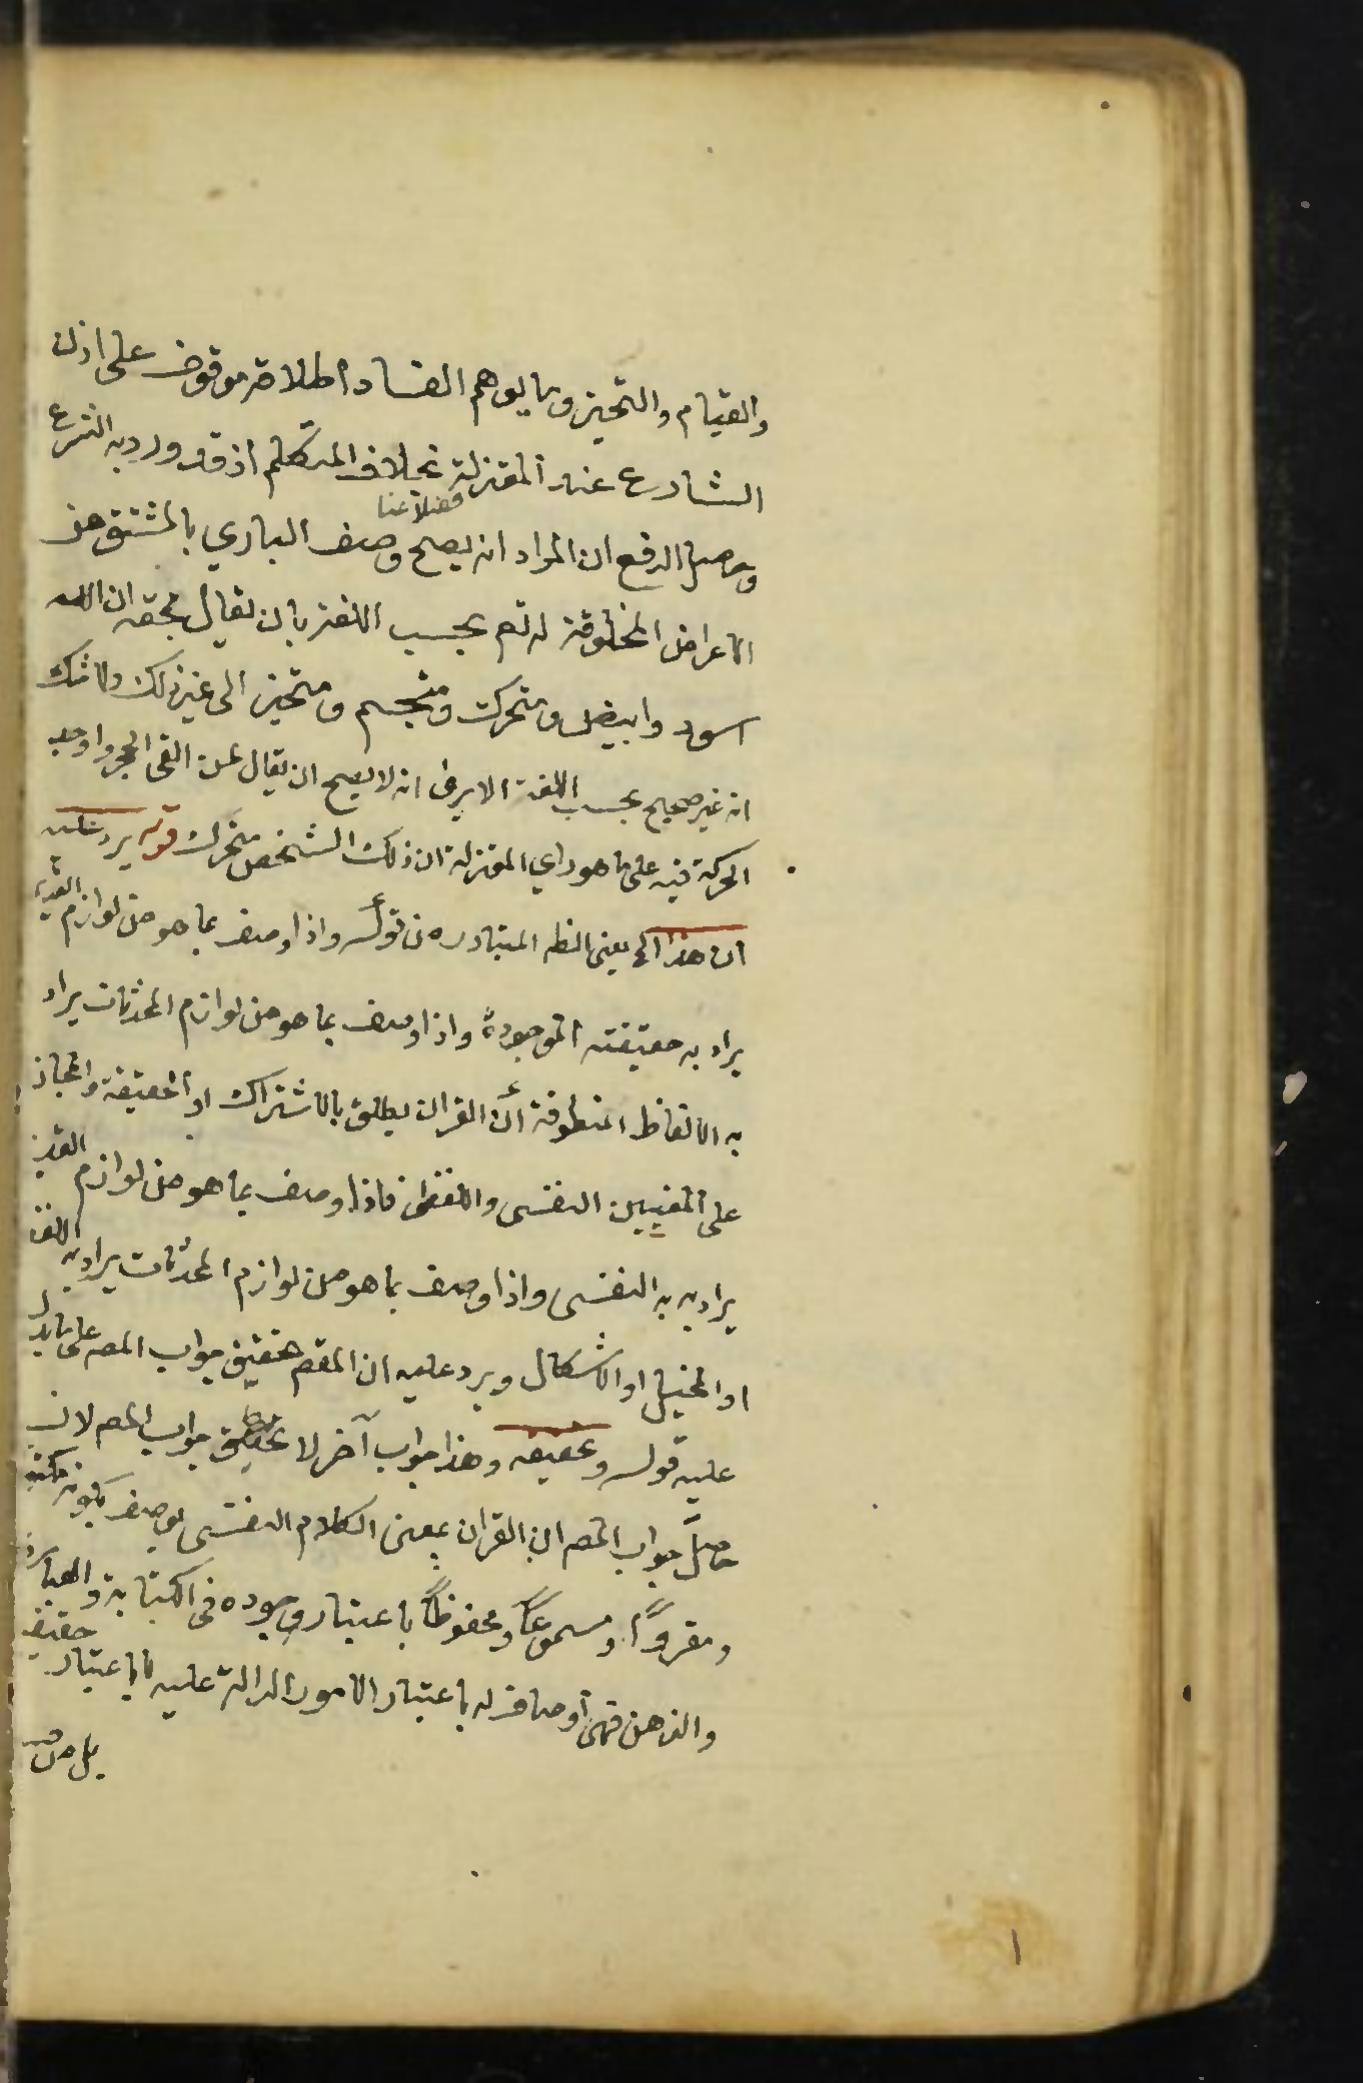 والقيام والتحيز وما يوهم الفساد اطلاقه موقوف على اذن
الشارع عند المعتزلة بخلاف المتكلم اذ قد ورد به الشرع
فضلا عنا
وحاصل الدفع ان المراد انه يصح وصف الباري بالمشتق من
الاعراض المخلوقة له تع بحسب اللغة بان يقال بحقه ان الله
اسود وابيض ومتحرك ومتجسم ومتحيز الى غير ذلك ولا شك
انه غير صحيح بحسب اللغة الا يرى انه لا يصح ان يقال لمن القى الحجر واوجد
الحركة فيه على ما هو راي المعتزلة ان ذلك الشخص متحرك قوله يرد عليه
ان هذا الخ يعني الظ المتبادر من قوله واذا وصف بما هو من لوازم القديم
يراد به حقيقته الموجودة واذا وصف بما هو من لوازم المحدثات يراد
به الالفاظ المنطوقة ان القران يطلق بالاشتراك او الحقيقة والمجاز
على المعنيين النفسي واللفظي فاذا وصف بما هو من لوازم القديم
يراد به به النفسي واذا وصف بما هو من لوازم المحدثات يراد به اللفظ
او المخيل او الاشكال ويرد عليه ان المقصم تحقيق جواب المص على ما يدل
عليه قوله وتحقيقه وهذا جواب آخر لا تحقيق جواب المص لان
حاصل جواب المص ان القران بمعنى الكلام النفسي يوصف بكونه مكتوبا
ومقروًّا ومسموعًا ومحفوظًا باعتبار وجوده في الكتابة والعبارة
والذهن فهي اوصاف له باعتبار الامور الدالة عليه لا باعتبار حقيقة
بل من